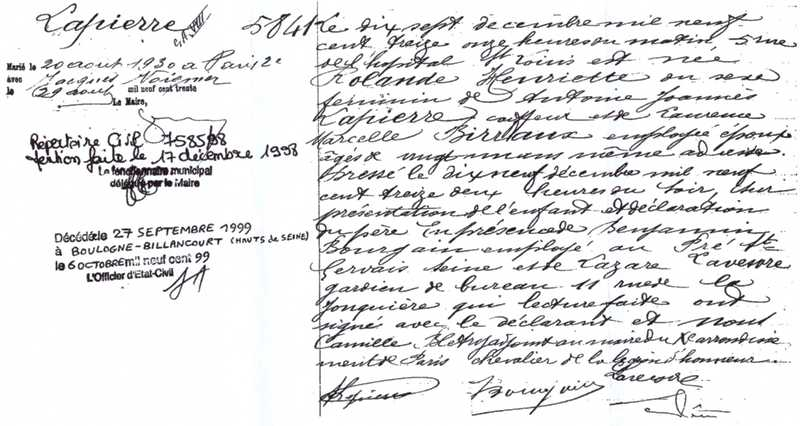 Lapierre
5841
Marié le 20 août 1930 à Paris 2e
avec Jacques Noiemer
le 29 août mil neuf cent trente
Le Maire,
Répertoire Civil 758598
mention faite le 17 décembre 1998
Le fonctionnaire municipal
délégué par le Maire
Décédé le 27 SEPTEMBRE 1999
à BOULOGNE-BILLANCOURT (HAUTS de SEINE)
le 6 OCTOBRE mil neuf cent 99
L'Officier d'Etat-Civil
Le dix sept décembre mil neuf
cent treize onze heures du matin, 5 rue
de l'hopital St Louis est née
Rolande Henriette du sexe
féminin de Antoine Joannès
Lapierre coiffeur et de Laurence
Marcelle Birraux employée époux
âgés de vingt un ans même adresse.
Dressé le dix neuf décembre mil neuf
cent treize deux heures du soir, sur
présentation de l'enfant et déclaration
du père En présence de Benjamin
Bourgain employé au Pré St
Gervais Seine et de Lazare Lavesvre
gardien de bureau 11 rue de la
Jonquière qui lecture faite ont
signé avec le déclarant et Nous
Camille adjoint au maire du Xe arrondisse
ment de Paris chevalier de la Légion d'honneur
Lapierre Bourgain Lavesvre